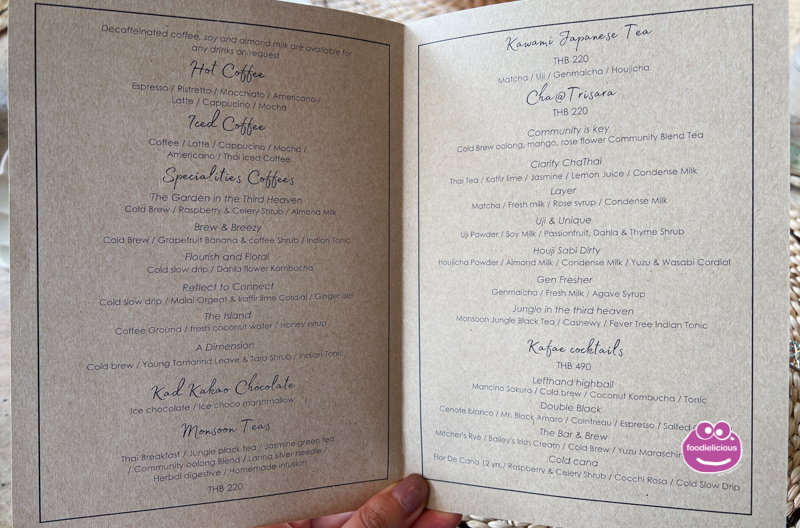 Decaffeinated coffee, soy and almond milk are available for
any drinks on request
Hot Coffee
Espresso / Ristretto / Macchiato / Americano /
Latte / Cappucino / Mocha
Iced Coffee
Coffee / Latte / Cappucino / Mocha /
Americano / Thai Iced Coffee
Specialities Coffees
The Garden in the Third Heaven
Cold Brew / Raspberry & Celery Shrub / Almond Milk
Brew & Breezy
Cold Brew / Grapefruit Banana & coffee Shrub / Indian Tonic
Flourish and Floral
Cold slow drip / Dahla flower Kombucha
Reflect to Connect
Cold slow drip / Malai Orgeat & kaffir lime Cordial / Ginger ale
The Island
Coffee Ground / fresh coconut water / Honey syrup
A Dimension
Cold brew / Young Tamarind Leave & Taro Shrub / Indian Tonic
Kad Kakao Chocolate
Ice chocolate / Ice choco marshmallow
Monsoon Teas
Thai Breakfast / Jungle black tea / Jasmine green tea
/ Community oolong Blend / Lanna silver needle /
Herbal digestive / Homemade infusion
THB 220
Kawami Japanese Tea
THB 220
Matcha / Uji / Genmaicha / Houjicha
Cha@Trisara
THB 220
Community is key
Cold Brew oolong, mango, rose flower Community Blend Tea
Clarify ChaThai
Thai Tea / Kaffir lime / Jasmine / Lemon Juice / Condense Milk
Layer
Matcha / Fresh milk / Rose syrup / Condense Milk
Uji & Unique
Uji Pawder / Soy Milk / Passionfruit, Dahla & Thyme Shrub
Houji Sabi Dirty
Houjicha Powder / Almond Milk / Condense Milk / Yuzu & Wasabi Cordial
Gen Fresher
Genmaicha / Fresh Milk / Agave Syrup
Jungle in the third heaven
Monsoon Jungle Black Tea / Cashewy / Fever Tree Indian Tonic
Kafae cocktails
THB 490
Lefthand highball
Mancino Sakura / Cold brew / Coconut Kombucha / Tonic
Double Black
Cenote blanco / Mr. Black Amaro / Cointreau / Espresso / Salted
The Bar & Brew
Mitcher's Rye / Bailey's Irish Cream / Cold Brew / Yuzu Maraschino
Cold cana
Flor De Cana 12 yrs / Raspberry & Celery Shrub / Cocchi Rosa / Cold Slow Drip
foodielicious